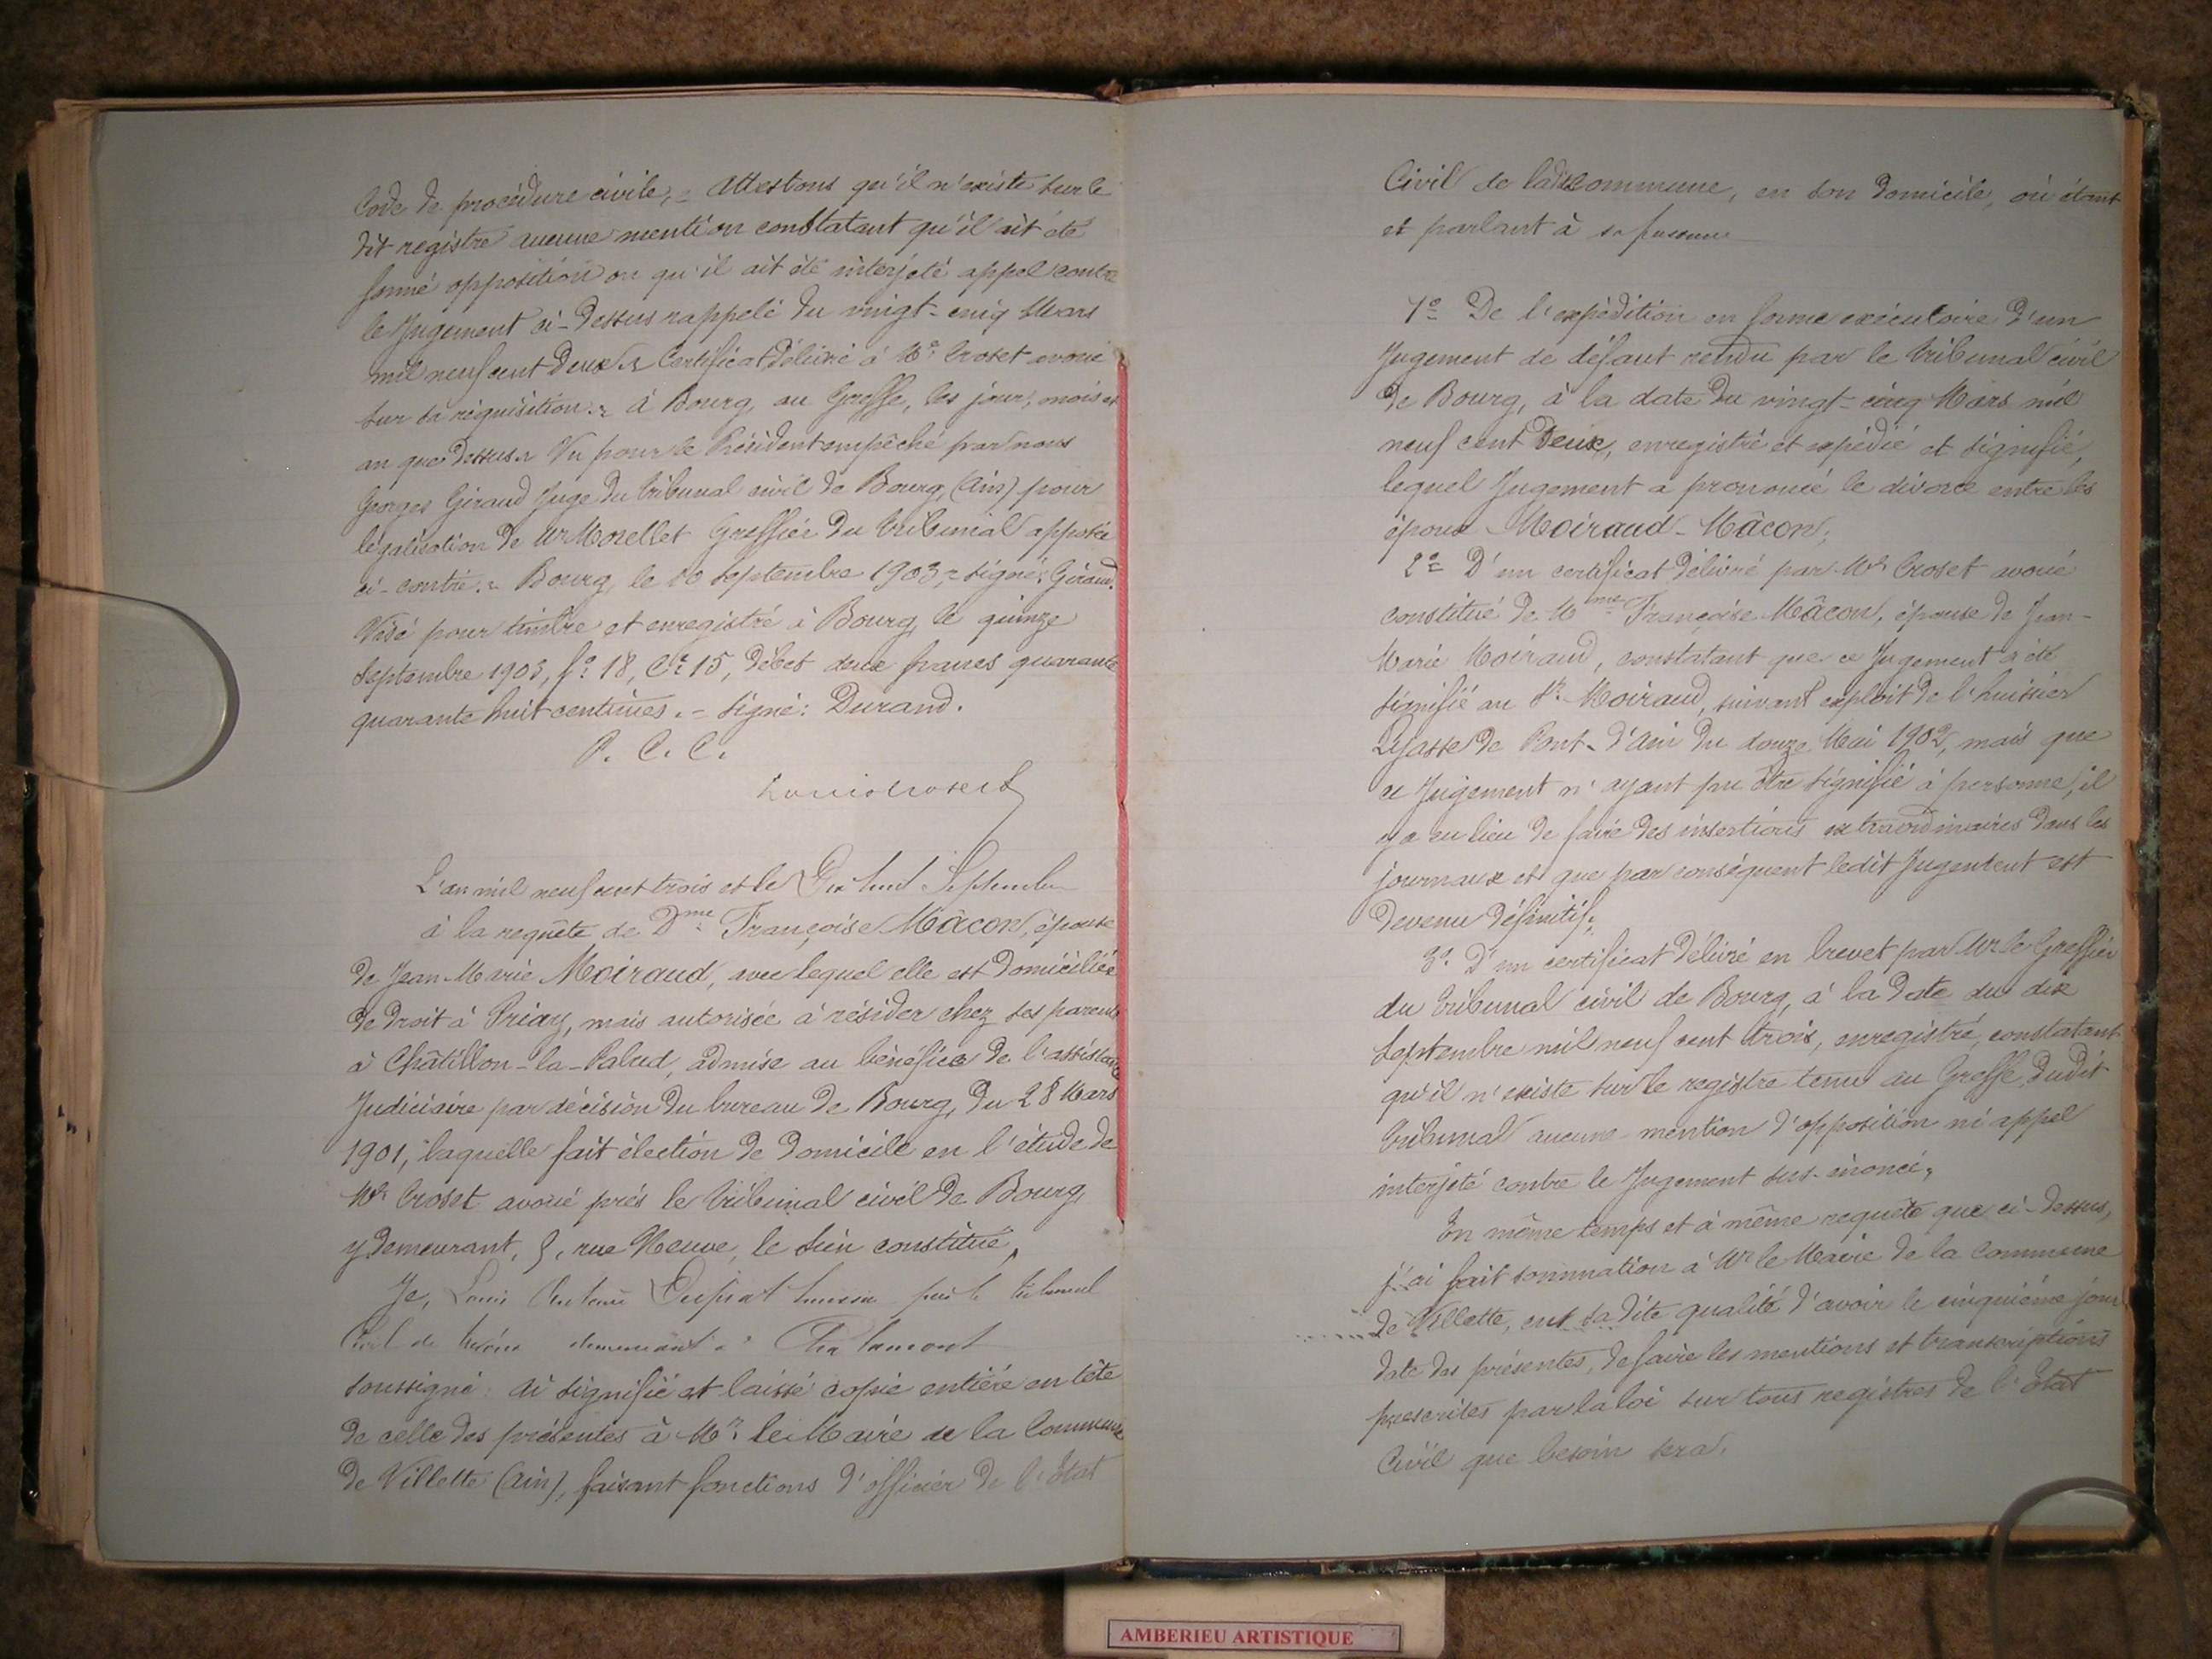 Code de procédure civile, = Attestons qu'il n'existe sur le
dit registre aucune mention constatant qu'il ait été
formé opposition ou qu'il ait été interjeté appel contre
le Jugement ci-dessus rappelé du vingt-cinq Mars
mil neuf cent deux. Certificat délivré à Me Croset avoué
sur sa réquisition. = à Bourg, au Greffe, les jour, mois et
an que dessus. Vu pour le Président empêché par nous
Georges Giraud Juge du tribunal civil de Bourg, (Ain) pour
légalisation de Mr Morellet Greffier du tribunal apposée
ci-contre. = Bourg, le 10 Septembre 1903 = signé: Giraud.
Visé pour timbre et enregistré à Bourg, le quinze
Septembre 1903, fo 18, Ce 15, Débet deux francs quarante
quarante huit centimes. = signé: Durand.
P. C. C.
L'an mil neuf cent trois et le Dix huit Septembre
à la requête de Dme Françoise Mâcon, épouse
de Jean-Marie Moiraud, avec lequel elle est domiciliée
de droit à Priay, mais autorisée à résider chez ses parents
à Châtillon-la-Palud, admise au bénéfice de l'assistance
Judiciaire par décision du bureau de Bourg, du 28 Mars
1901, laquelle fait élection de domicile en l'étude de
Me Croset avoué près le tribunal civil de Bourg,
y demeurant, 5, rue Neuve, le sien constitué,
Je, Louis Duprat huissier près le tribunal
Civil de Trévoux demeurant à Chalamont
soussigné ai signifié et laissé copie entière en tête
de celle des présentes à Mr le Maire de la Commune
de Villette (Ain), faisant fonctions d'officier de l'Etat
Civil de ladite commune, en son domicile, où étant
et parlant à sa personne
1o De l'expédition en forme exécutoire d'un
Jugement de défaut rendu par le tribunal civil
de Bourg, à la date du vingt-cinq Mars mil
neuf cent deux, enregistré et expédié et signifié,
lequel Jugement a prononcé le divorce entre les
époux Moiraud-Mâcon;
2o D'un certificat délivré par Me Croset avoué
constitué de Mme Françoise Mâcon, épouse de Jean-
Marie Moiraud, constatant que ce Jugement a été
signifié au Sr Moiraud, suivant exploit de l'huissier
de Pont-d'Ain du douze Mai 1902, mais que
ce Jugement n'ayant pu être signifié à personne, il
y a eu lieu de faire des insertions extraordinaires dans les
journaux et que par conséquent ledit Jugement est
devenu définitif;
3o D'un certificat délivré en brevet par Mr le Greffier
du tribunal civil de Bourg, à la date du dix
Septembre mil neuf cent trois, enregistré, constatant
qu'il n'existe sur le registre tenu au Greffe dudit
tribunal aucune mention d'opposition ni appel
interjeté contre le Jugement sus-énoncé;
En même temps et à même requête que ci-dessus,
j'ai fait sommation à Mr le Maire de la Commune
de Villette, en sa dite qualité d'avoir le cinquième jour
date des présentes, de faire les mentions et transcriptions
prescrites par la loi sur tous registres de l'Etat
Civil que besoin sera.
AMBERIEU ARTISTIQUE